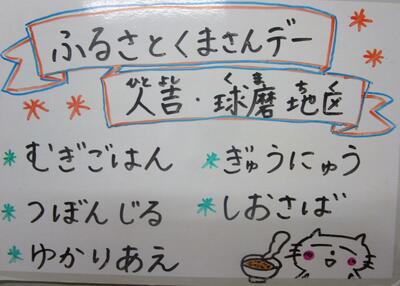 ふるさとくまさんデー
人吉・球磨地区
ひとよし くま ちく
むぎごはん
ぎゅうにゅう
つぼんじる
しおさば
ゆかりあえ